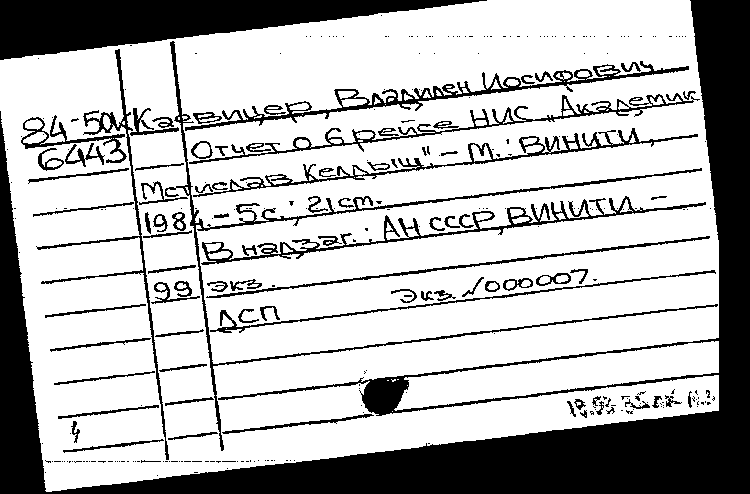 84-50к Каевицер, Владилен Иосифович.
6443 Отчет о 6 рейсе НИС „Академик
Мстислав Келдыш". - М.: ВИНИТИ,
1984. - 5 с.; 21 cm.
В надзаг.: АН СССР, ВИНИТИ. -
99 экз.
ДСП Экз. №000007.
4